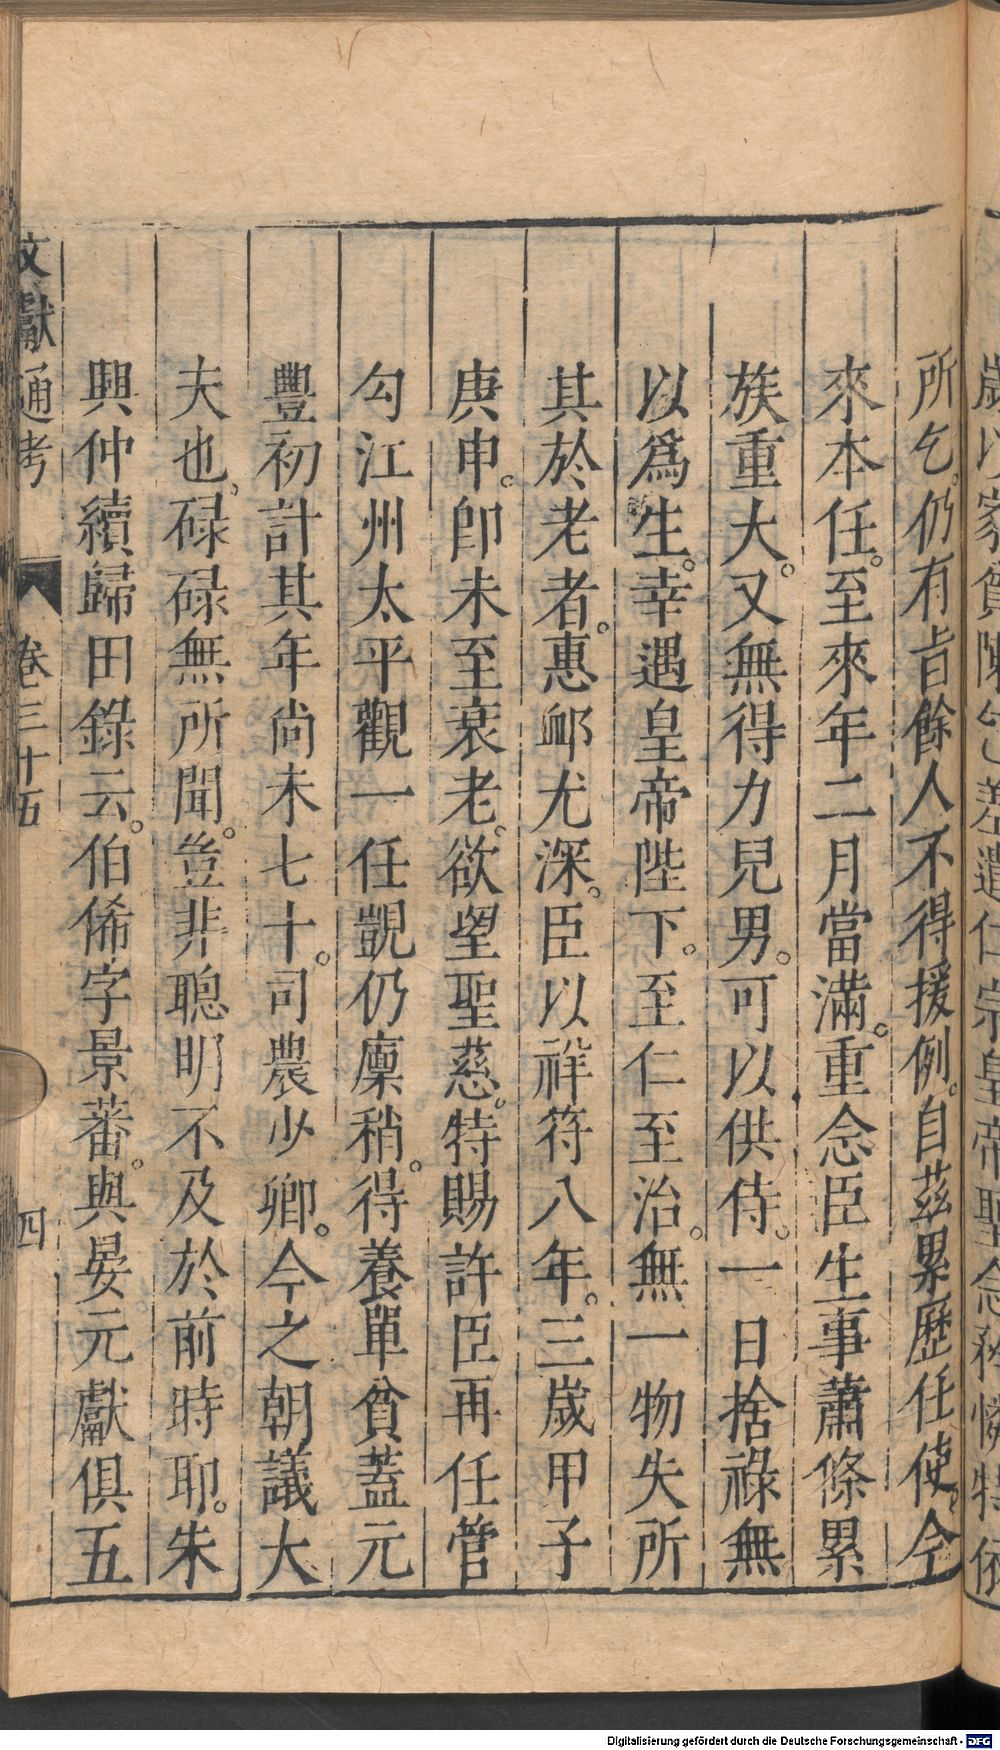 所乞。仍有旨餘人不得援例。自茲累歷任使。今
來本任。至來年二月當滿。重念臣生事蕭條累
族重大。又無得力兒男。可以供侍。一日捨祿無
以爲生。幸遇皇帝陛下。至仁至治。無一物失所
其於老者。惠邮尤深。臣以祥符八年。三歲甲子
庚申。卽未至衰老。欲望聖慈。特賜許臣再任管
勾江州太平觀一任覬仍廩稍。得養單貧蓋元
豐初計其年尚未七十。司農少卿。今之朝議大
夫也。碌碌無所聞。豈非聰明不及於前。時耶。朱
興仲續歸田錄云。伯俙字景蕃。與晏元獻俱五
文獻通考 卷三十五 四
Digitalisierung gefördert durch die Deutsche Forschungsgemeinschaft - DFG